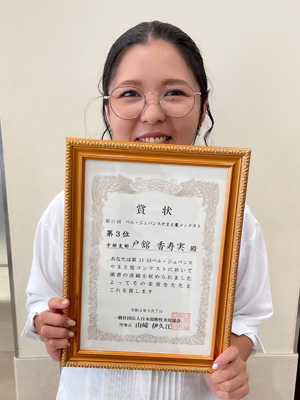 賞状
第11回 ベル・ジュバンスやまと髪コンテスト
第3位
中部支部 戸舘 香寿実 殿
あなたは第11回ベル・ジュバンス
やまと髪コンテストに於いて
頭書の成績を収められました
よってその栄誉をたたえ
これを賞します
一般社団法人日本国際性美容協会
理事長 山﨑 伊久江